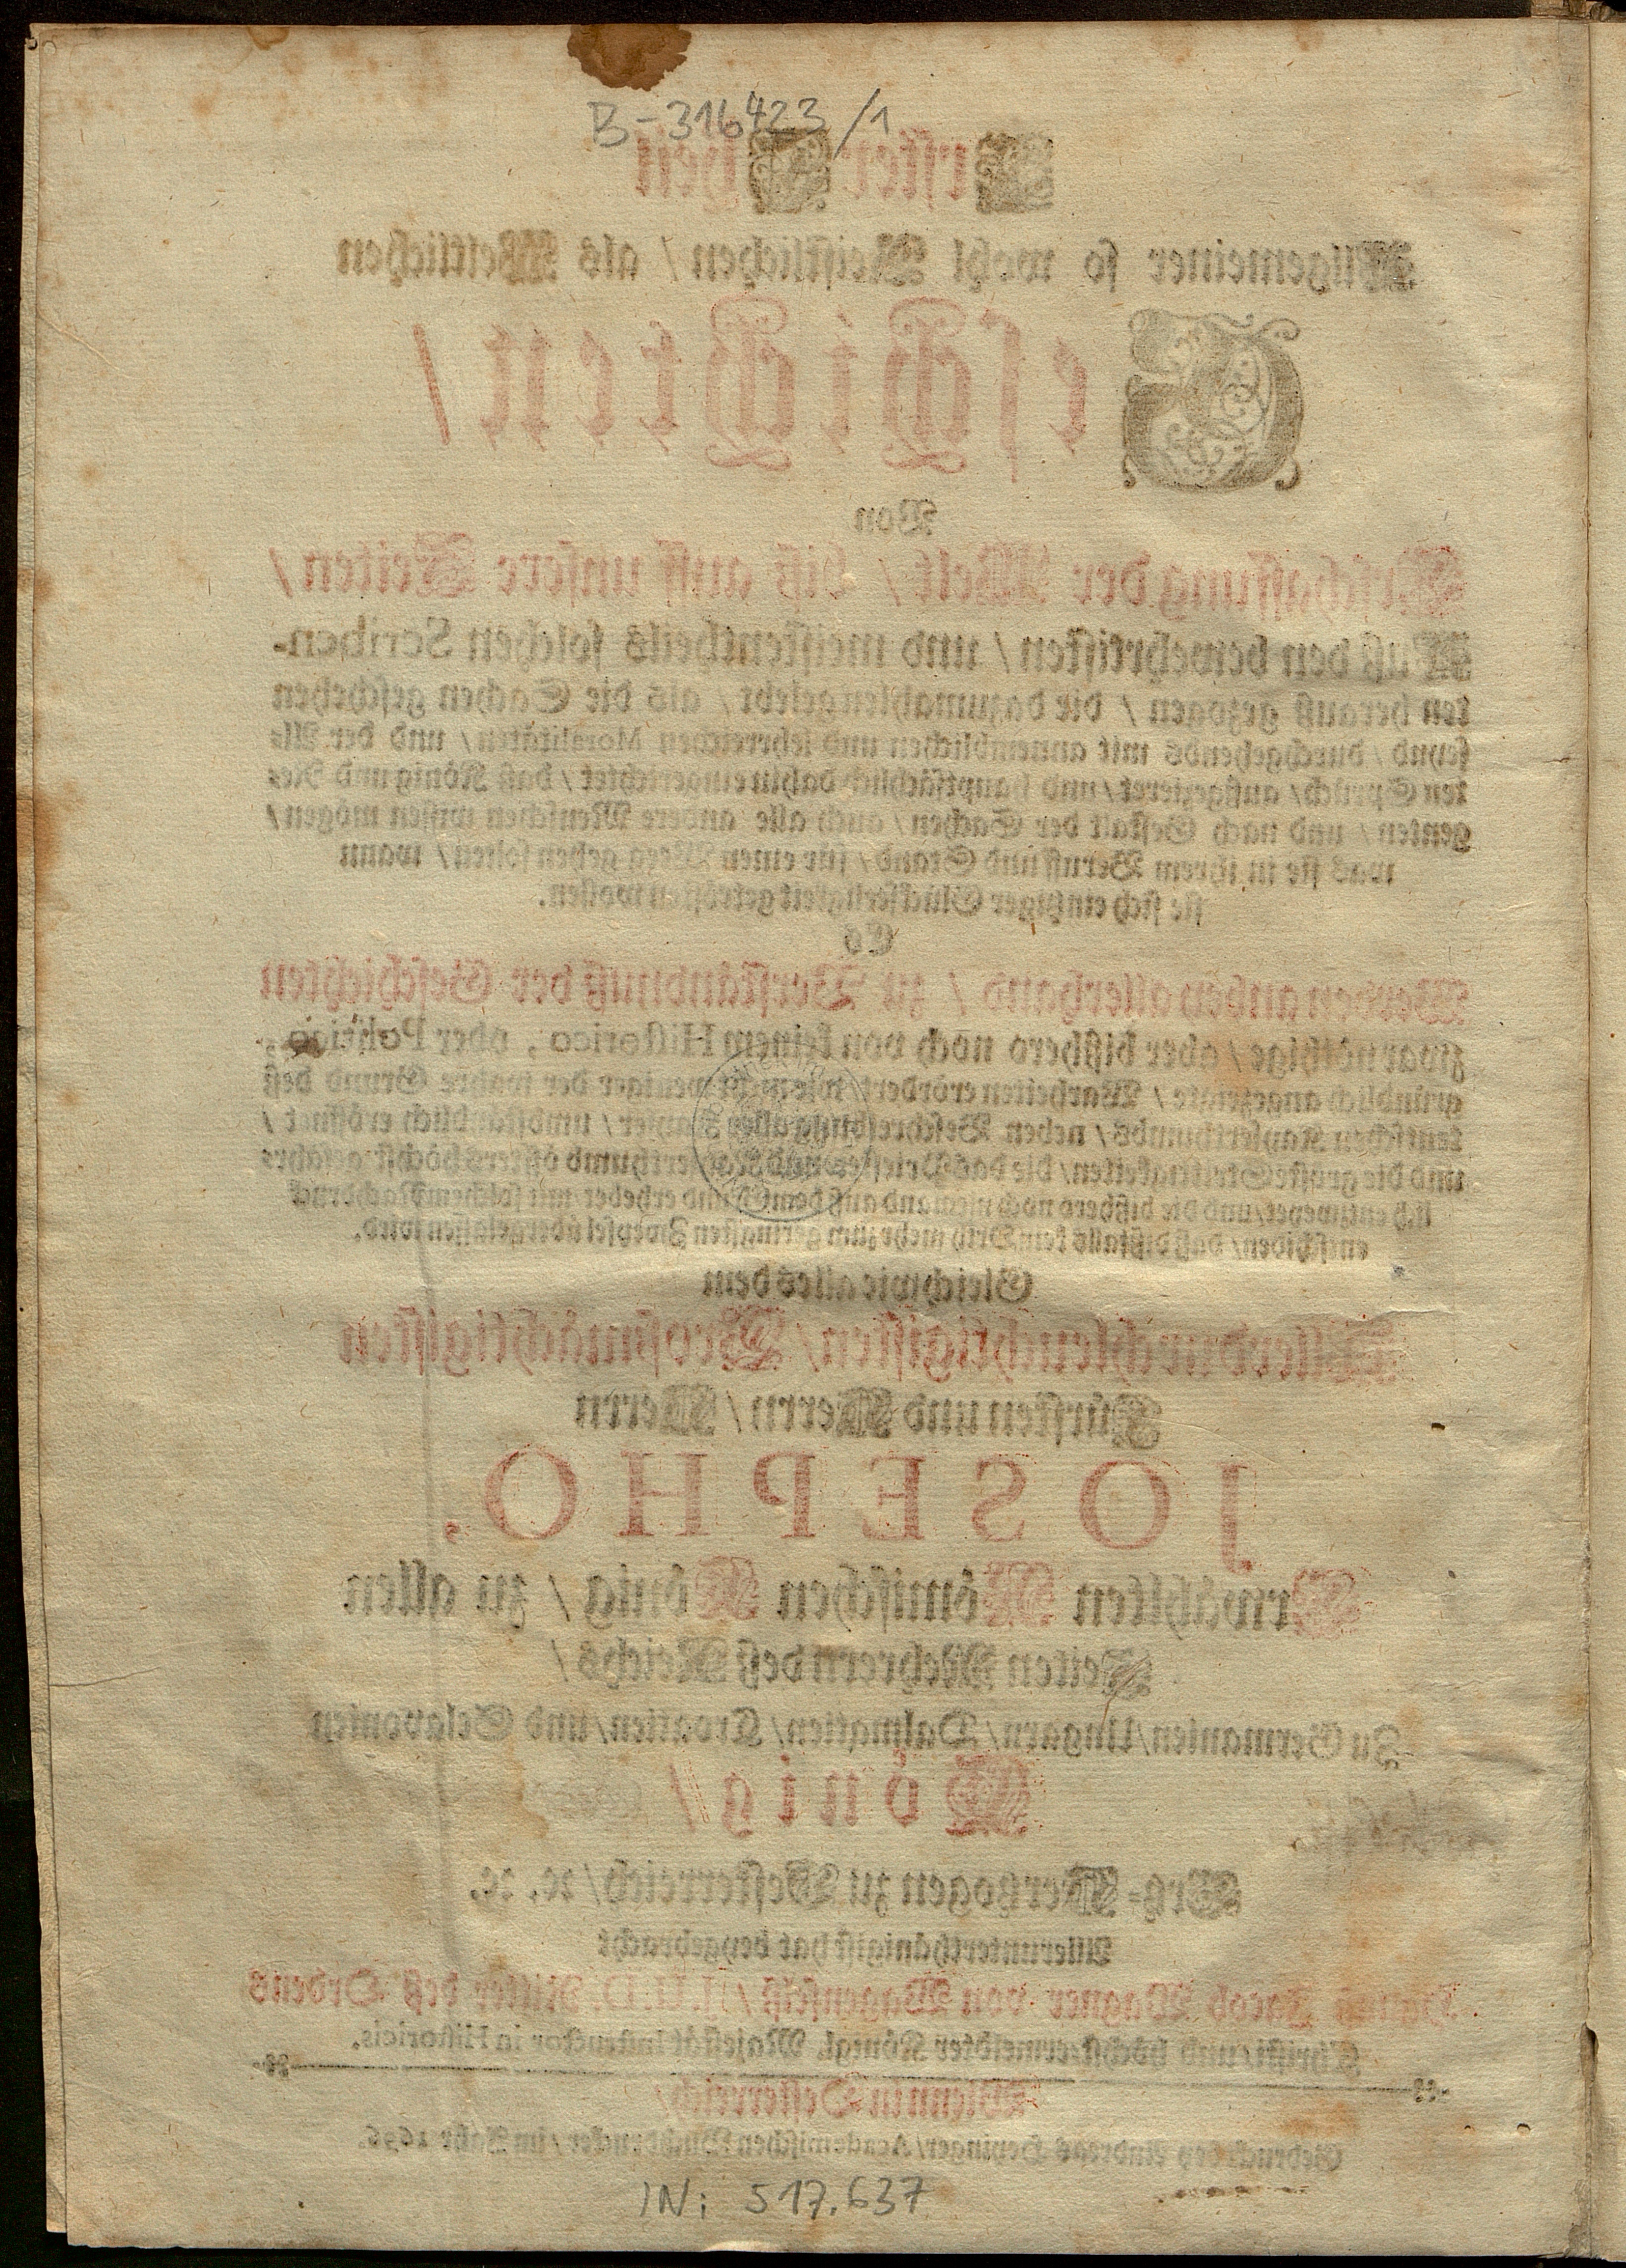 B-316423/1
Erster Theil
Allgemeiner so wohl Geistlichen / als Weltlichen
Geschichten /
Von
Erschaffung der Welt / biß auff unsere Zeiten /
Auß den bewehrtisten / und meistentheils solchen Scriben-
ten herauß gezogen / die dazumahlen gelebt / als die Sachen geschehen
seynd / durchgehends mit annemblichen und lehrreichen Moralitäten / und der Al-
ten Sprüch / außgezieret / und hauptsächlich dahin eingerichtet / daß König und Re-
genten / und nach Gestalt der Sachen / auch alle andere Menschen wissen mögen /
was sie in ihrem Beruff und Stand / für einen Weeg gehen sollen / wann
sie sich einziger Glückseeligkeit getrösten wollen.
Es
Werden anben allerhand / zu Verständnuß der Geschichten
zwar nöthige / aber bißhero noch von keinem Historico, oder Politico,
gründlich angezeigte / Warheiten erördert / nicht weniger der wahre Grund deß
teutschen Kayserthumbs / neben Beschreibung aller Kayser / umbständlich eröffnet /
und die gröste Strittigkeiten / die das Priester- und Kayserthumb öffters höchst gefähr-
lich entzweyet / und die bißhero noch niemand auß dem Grund erhebet / mit solchem Nachdruck
entschiden / daß dißfalls kein Orth mehr zum geringsten Zweyfel übergelassen wird.
Gleichwie alles dem
Allerdurchleuchtigisten / Großmächtigisten
Fürsten und Herrn / Herrn
JOSEPHO,
Erwählten Römischen König / zu allen
Zeiten Mehrern deß Reichs /
Zu Germanien / Ungarn / Dalmatien / Croatien / und Sclavonien
König /
Ertz-Hertzogen zu Oesterreich / ꝛc. ꝛc.
Allerunterthänigist hat beygebracht
Hannß Jacob Wagner von Wagenfelß / J.U.D. Ritter deß Ordens
Christi / und höchsternieldter Königl. Majestät Instructor in Historicis.
Wienn in Oesterreich /
Gedruckt bey Andreas Heyinger / Academischen Buchdrucker / im Jahr
IN: 517.637